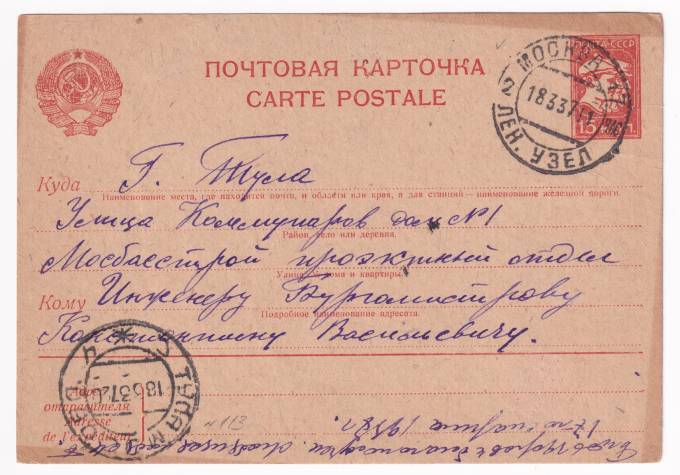 ПОЧТОВАЯ КАРТОЧКА
CARTE POSTALE
МОСКВА
18337 11
2 ЛЕН. УЗЕЛ
СССР
15
Куда Г. Тула
Наименование места, где находится почта, и области или края, а для станций – наименование железной дороги.
Улица Коммунаров дом №1
Район, село или деревня.
Мосбасстрой проэктный отдел
Улица, № дома и квартиры.
Кому Инженеру Бургамистрову
Подробное наименование адресата.
Константину Васильевичу.
ТУЛА
18337
Адрес
отправителя
Adresse
de l'expéditeur
№ 113